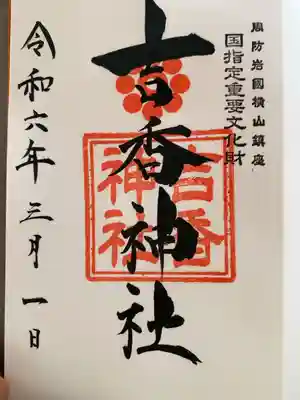 周防岩國横山鎮座
国指定重要文化財
吉香神社
吉香
神社
令和六年三月一日